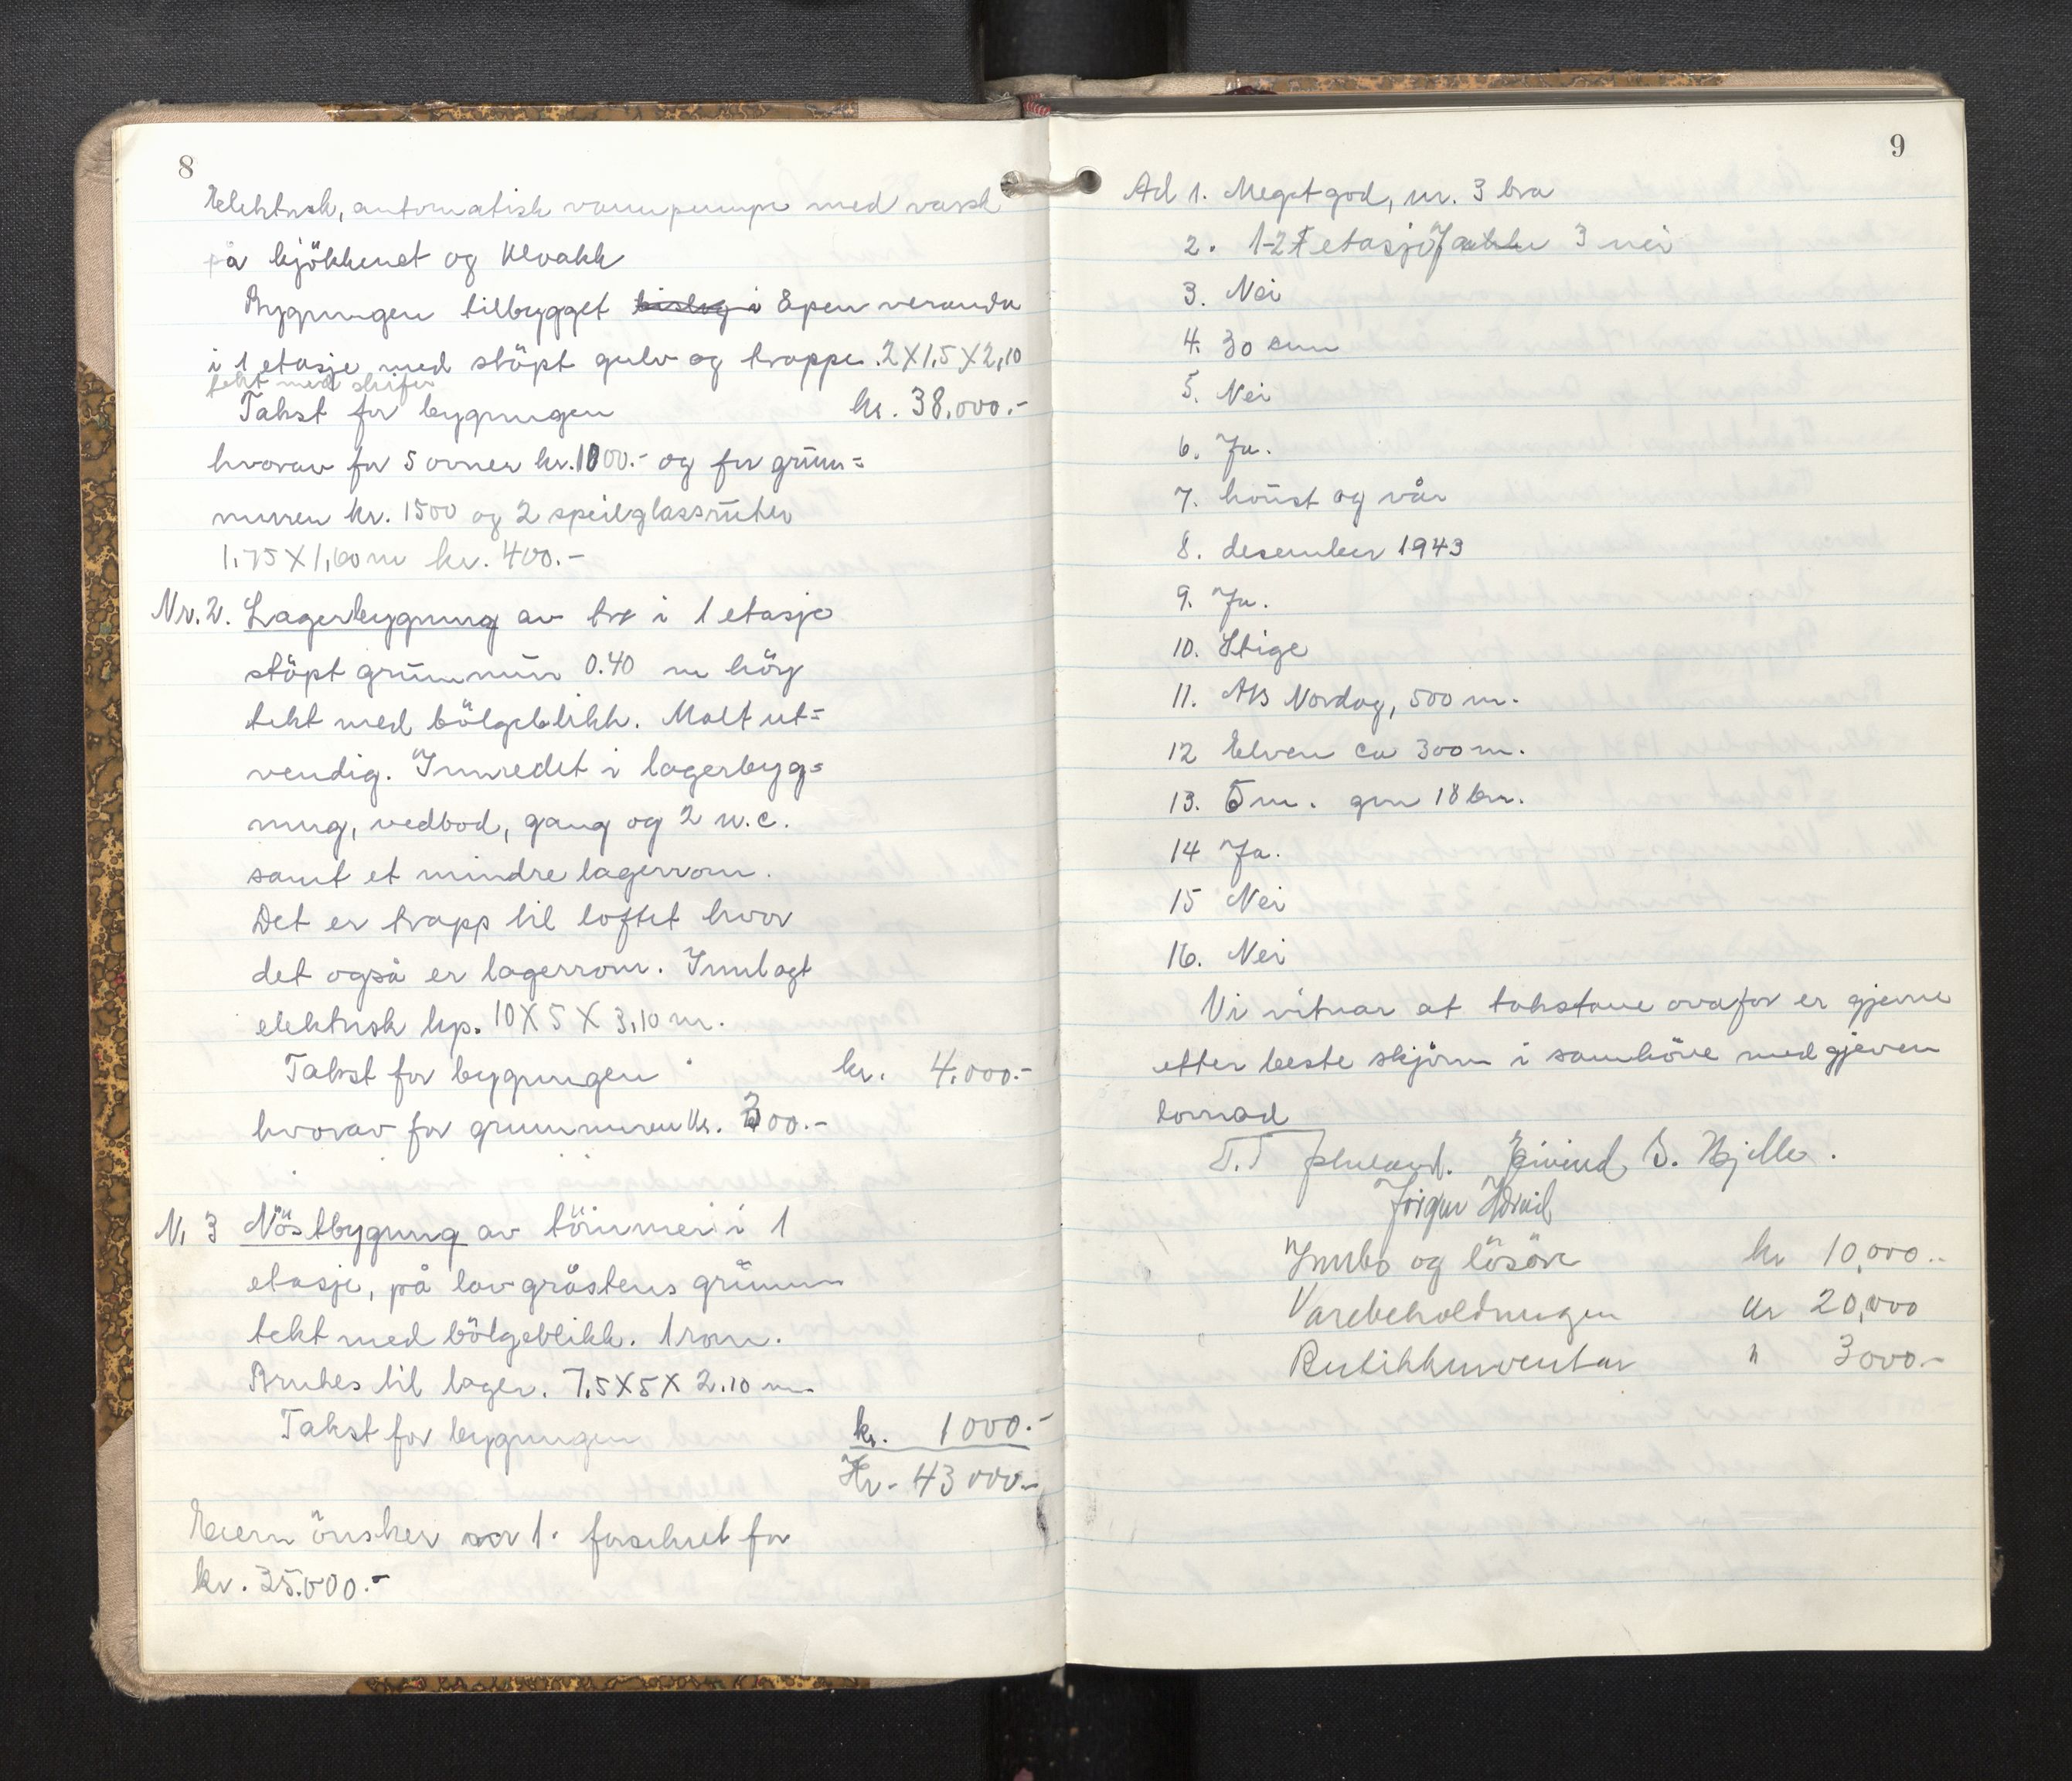 8
Elektrisk, automatisk vannpumpe med vask
på kjökkenet og kloakk
Bygningen tilbygget bislag i åpen veranda
i 1 etasje med stöpt gulv og trappe. 2X1,5X2,10
tekt med skifer
Takst for bygningen kr. 38.000.-
hvorav for 5 ovner kr. 1000.- og for grunn=
muren kr. 1500 og 2 speilglassruter
1,75X1,60m kr. 400.-
Nr. 2. Lagerbygning av tre i 1 etasje
stöpt grunnmur 0.40 m höy
tekt med bölgeblikk. Malt ut=
vendig. Innredet i lagerbyg=
ning, vedbod, gang og 2 w.c.
samt et mindre lagerrom.
Det er trapp til loftet hvor
det også er lagerrom. Innlagt
elektrisk lys. 10X5X3,10 m.
Takst for bygningen kr. 4.000.-
hvorav for grunnmuren kr. 300.-
N. 3 Nöstbygning av tömmer i 1
etasje, på lav gråstens grunn
tekt med bölgeblikk. 1 rom.
Brukes til lager. 7,5X5X2.10 m.
Takst for bygningen kr. 1000.-
Kr.- 43000.-
Eieren önsker nr 1. forsikret for
kr. 35.000.-
9
Ad 1. Meget god, nr. 3 bra
2. 1-2 etasje Ja 3 nei
3. Nei
4. 30 cm
5. Nei
6. Ja.
7. houst og vår
8. desember 1943
9. Ja.
10. Stige
11. A/s Nordag, 500 m.
12 Elven ca 300 m.
13. 5 m. gm 18 km.
14 Ja.
15 Nei
16. Nei
Vi vitnar at takstane ovafor er gjevne
etter beste skjönn i samhöve med gjeven
lovnad
T.T Eivind S. Hjelle.
Jörgen
Innbo og lösöre kr 10,000.-
Varebeholdningen kr 20,000
Butikkinventar " 3000.-